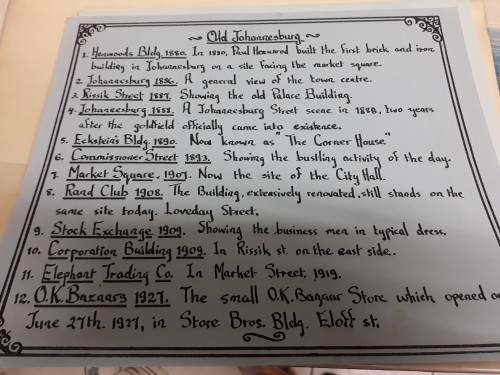 ~ Old Johannesburg ~
1. Henwoods Bldg. 1880. In 1880, Paul Henwood built the first brick and iron
building in Johannesburg on a site facing the market square.
2. Johannesburg 1896. A general view of the town centre.
3. Rissik Street 1887. Showing the old Palace Building.
4. Johannesburg 1888. A Johannesburg Street scene in 1888, two years
after the goldfield officially came into existence.
5. Eckstein's Bldg. 1890. Now known as "The Corner House."
6. Commissioner Street 1893. Showing the bustling activity of the day.
7. Market Square. 1907. Now the site of the City Hall.
8. Rand Club 1908. The Building, extensively renovated, still stands on the
same site today. Loveday Street.
9. Stock Exchange 1909. Showing the business men in typical dress.
10. Corporation Building 1909. In Rissik st. on the east side..
11. Elephant Trading Co. In Market Street, 1919.
12. O.K. Bazaars 1927. The small O.K. Bazaar Store which opened on
June 27th. 1927, in Store Bros. Bldg. Eloff st.